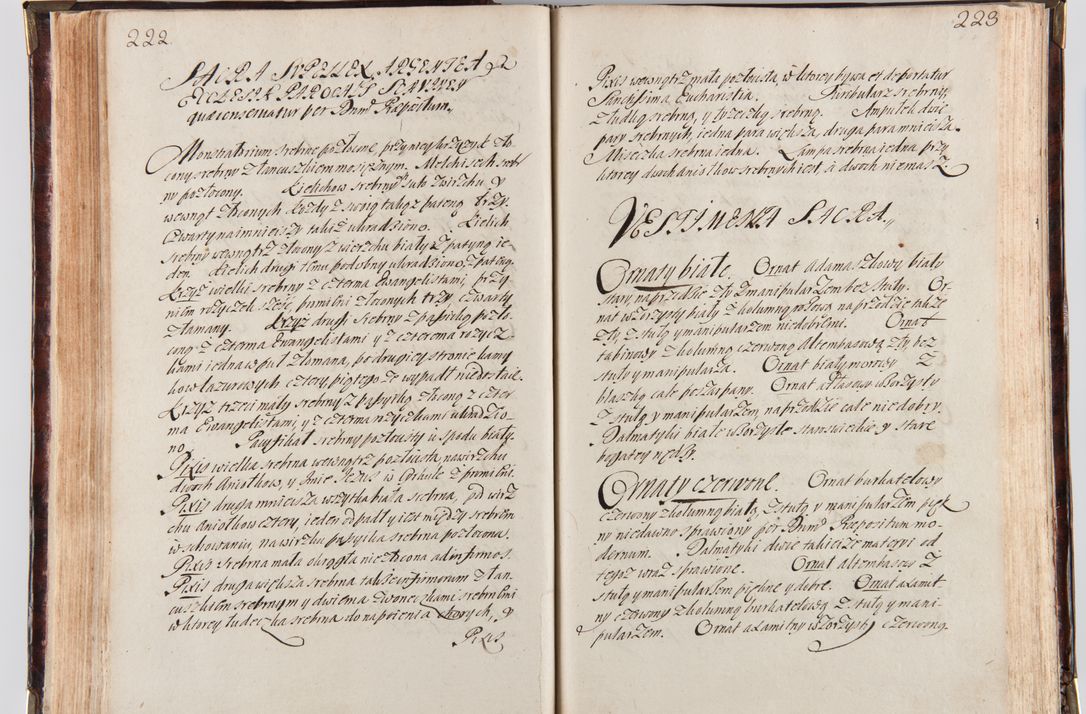 222.
SACRA SVPELLEX ARGENTEA
ECCLESIÆ PAROCHIS SLAVKOV
quæ conservatur per Dnum Præpositum.
Monstratorium srebrne pozłocone, przy niey krzyżyk zło
cony srebrny z łancuszkiem mosiężnym. Melchisech srebr
ny pozłocony. Kielichow srebrnych zwirzchu y
wewnątrz złoconych każdy z swoią takąż pateną trzy.
Czwarty naimnieiszy takiż ukradziono. Kielich
srebrny wewnątrz złocony z wierzchu biały z patyną ie
den. Kielich drugi temu podobny ukradziono, z pateną.
Krzyż wielki srebrny z czterma Ewangelistami, przy
nim rożyczek sześć, promieni złoconych trzy, czwarty
złamany. Krzyż drugi srebrny z passyiką pozło
coną z czterma Ewangelistami y z czterema rożycz
kami iedna wpuł złomana, po drugiey stronie kamy
kow lazurowych cztery, piątego że wypadł niedostaie.
Krzyż trzeci mały srebrny z passyiką złconą z czter
ma Ewangelistami, y z czterma rożyczkami ukradzio
no. Pacyfikał srebrny pozłcisty u spodu biały.
Pixis wielka srebrna wewnątrz pozłocista, nawirzchu
dwoch Aniołkow, y Imie Jezus w Cyrkule z promieńmi.
Pixis druga mnieisza wszytka biała srebrna, od wirz
chu aniołkow cztery, ieden odpadł y iest między srebrem
w schowaniu, na wirzchu passyika srebrna pozłocona.
Pixis srebrna mała okrągła nie złocona ad infirmos.
Pixis druga większa srebrna także infirmorum z łan
cuszkiem srebrnym y dwiema dzwoneczkami srebrnemi
w ktorey łudeczka srebrna do napoienia chorych, y
Pixis
223
Pixis wewnątrz mała pozłocista, w ktorey bywa et deportatur
Sanctissima Eucharistia. Turibularz srebrny,
z łudką srebrną, y łyżeczką srebrną. Ampułek dwie
pary srebrnych, iedna para większa, druga para mnieisza.
Miseczka srebrna iedna. Lampa srebrna iedna przy
ktorey dwoch aniołkow srebrnych iest, a dwoch niemasz
VESTIMENTA SACRA.
Ornaty białe. Ornat Adamaszkowy biały
stary, na przedzie zły z manipularzem bez stuły. Or
nat wzorzysty biały z kolumną rożową na przedzie także
zły z stułą y manipularzem niedobremi. Ornat
tabinowy z kolumną czerwoną altembasową, zły bez
stuły y manipularza. Ornat biały morowy z
blaszką całe poszarpany. Ornat atłasowy wzorzysty
z stułą y manipularzem, na przedzie cale niedobry.
Dalmatyki białe wzorzyste staroswieckie y stare
bogatey nędzy.
Ornaty czerwone. Ornat burkatelowy
czerwony z kolumną białą, z stułą y manipularzem pięk
ny niedawno sprawiony per Dnum Præpositum mo-
dernum. Dalmatyki dwie takieiże materyi od
tegoż wraz sprawione. Ornat altembasowy z
stułą y manipularzem piękne y dobre. Ornat axamit
ny czerwony z kolumną burkatelową z stułą y mani-
pularzem. Ornat axamitny wzorzysty czerwony.